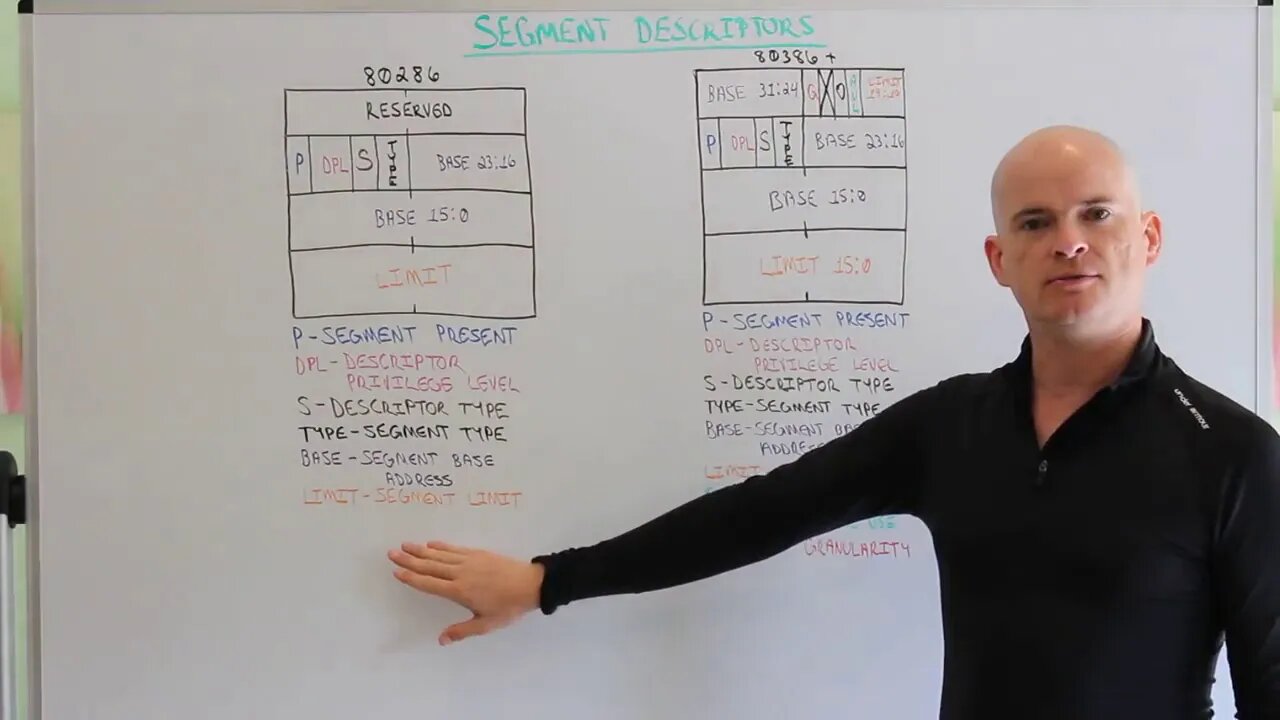 SEGMENT DESCRIPTORS
80286
RESERVED
P DPL S TYPE BASE 23:16
BASE 15:0
LIMIT
P-SEGMENT PRESENT
DPL-DESCRIPTOR
PRIVILEGE LEVEL
S-DESCRIPTOR TYPE
TYPE-SEGMENT TYPE
BASE-SEGMENT BASE
ADDRESS
LIMIT-SEGMENT LIMIT
80386+
BASE 31:24 G X 0 AVL LIMIT
P DPL S TYPE BASE 23:16
BASE 15:0
LIMIT 15:0
P-SEGMENT PRESENT
DPL-DESCRIPTOR
PRIVILEGE LEVEL
S-DESCRIPTOR TYPE
TYPE-SEGMENT TYPE
BASE-SEGMENT
LIMIT-
USE
GRANULARITY
under armour